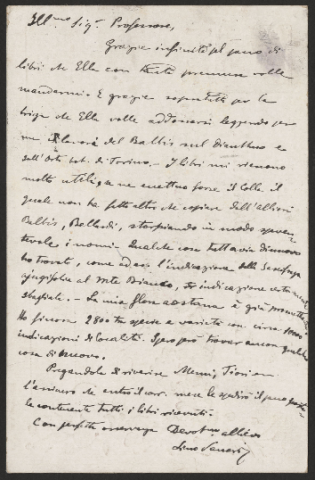 Ill.mo Sig.r Professore,
Grazie infinite pel pacco di
libri che Ella con tanta premura volle
mandarmi. E grazie soprattutto per la
briga che Ella volle addossarsi leggendo per
me i lavori del Balbis sul dianthus e
sull'Orto bot. di Torino. - I libri mi vennero
molto utili, se ne eccettuo forse il Colla il
quale non ha fatto altro che copiare dall'Allioni
Balbis, Bellardi, storpiando in modo spaven-
tevole i nomi. Qualche cosa tuttavia di nuovo
ho trovato, come ad es. l'indicazione della Saxifraga
al Mte Bianco, indicazione
. - La mia flora è già
Ho finora 2800 tra specie e varietà con circa
indicazioni di località. Spero poi trovar ancora qualche
cosa di nuovo.
Pregandola di riverire
l'assicuro che entro il corr. mese le spedirò il pacco
contenente tutti i libri ricevuti.
Con perfetta osservanza Devot.mo allievo